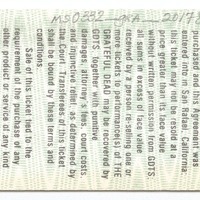 purchased and this Agreement was
entered into in San Rafael, California.
this ticket may not be resold at a
price greater than its face value
without written permission from GDTS.
all sums in excess of face value
received by a person re-selling one or
more tickets to performance(s) of THE
GRATEFUL DEAD may be recovered by
GDTS, together with punitive
damages, attorney's fees, court costs
and injunctive relief as determined by
the Court. Transferees of this ticket
shall be bound by these terms and
conditions.
Sale of this ticket is not tied to the
requirement of the purchase of any
other product or service of any kind